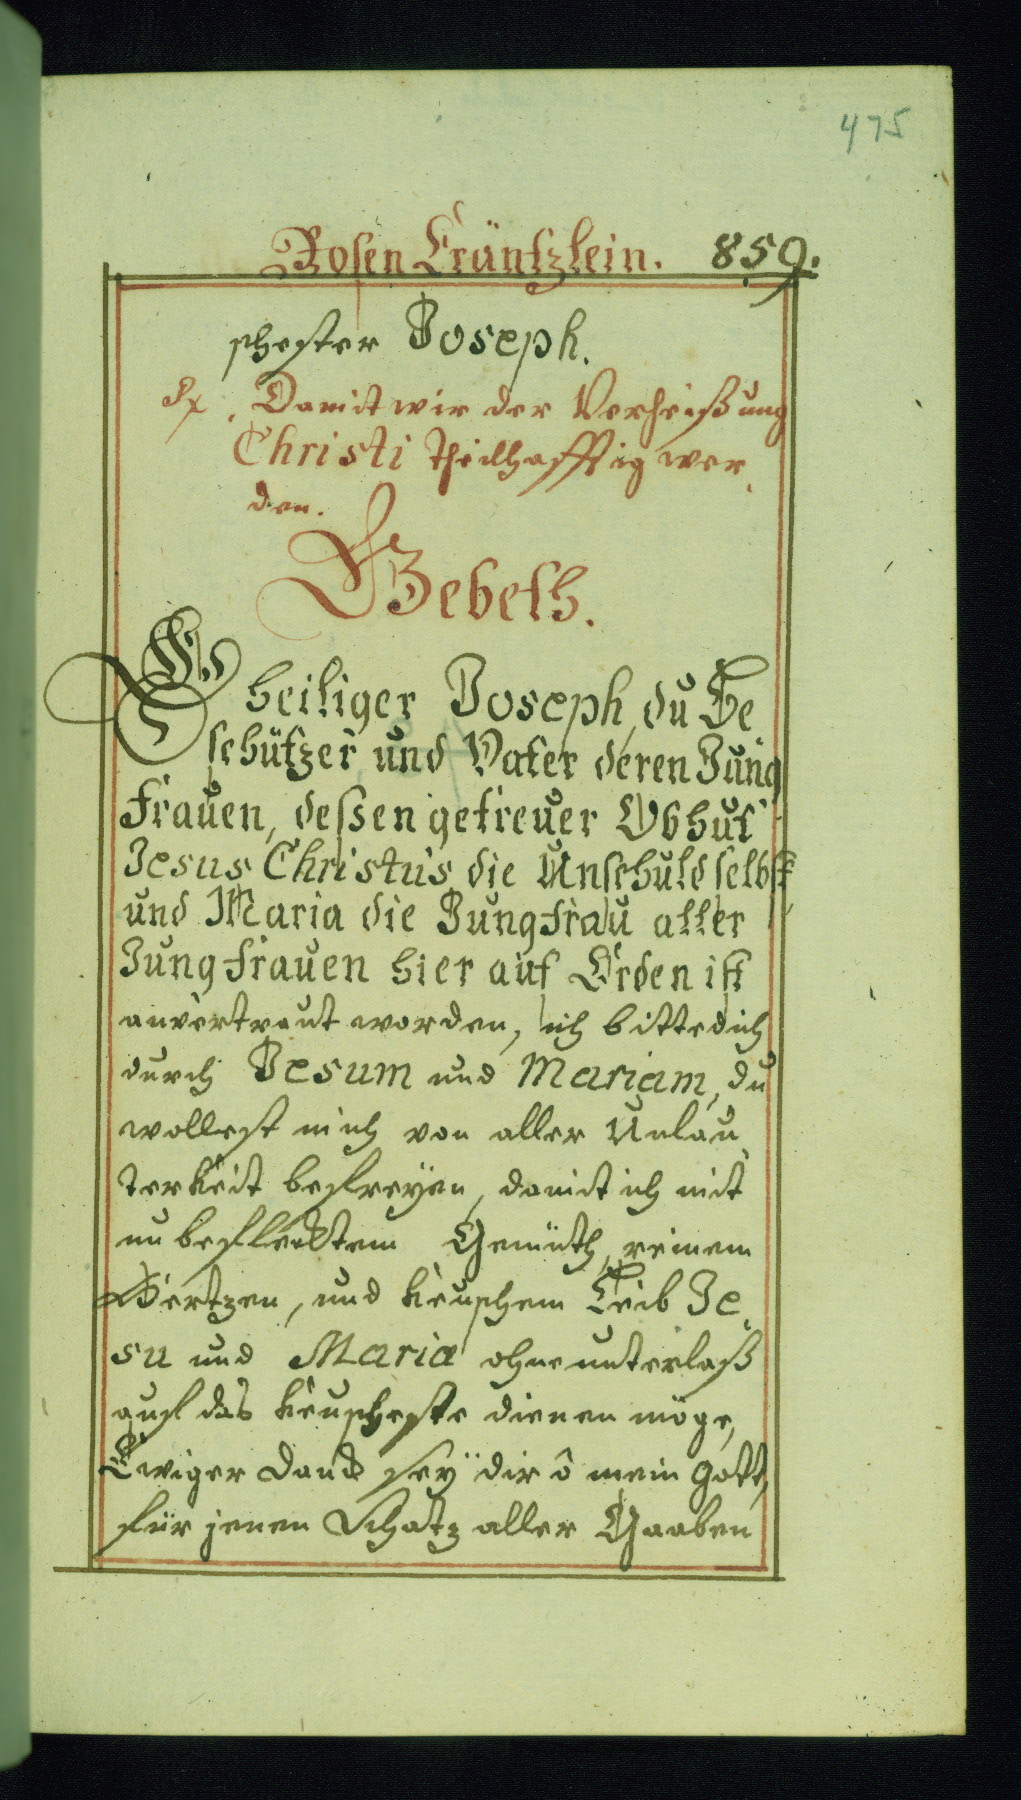 475
Rosen Cräntzlein. 859.
schester Joseph.
℞. Damit wir der Verheißung
Christi theilhafftig wer,
den.
Gebeth.
O heiliger Joseph, du Be
schützer und Vater deren Jung
frauen, deßen getreuer Obhut
Jesus Christus die Unschuld selbst
und Maria die Jungfrau aller
Jungfrauen hier auf Erden ist
anvertraut worden, ich bitte dich
durch Jesum und Mariam, du
wollest mich von aller Unlau,
terkeit befreÿen, damit ich mit
unbeflecktem Gemüth, reinem
Hertzen, und keuschem Leib Je,
su und Maria ohne unterlaß
auf das keuscheste dienen möge,
Ewiger danck seÿ dir ô mein Gott,
für jenen Schatz aller Gaaben